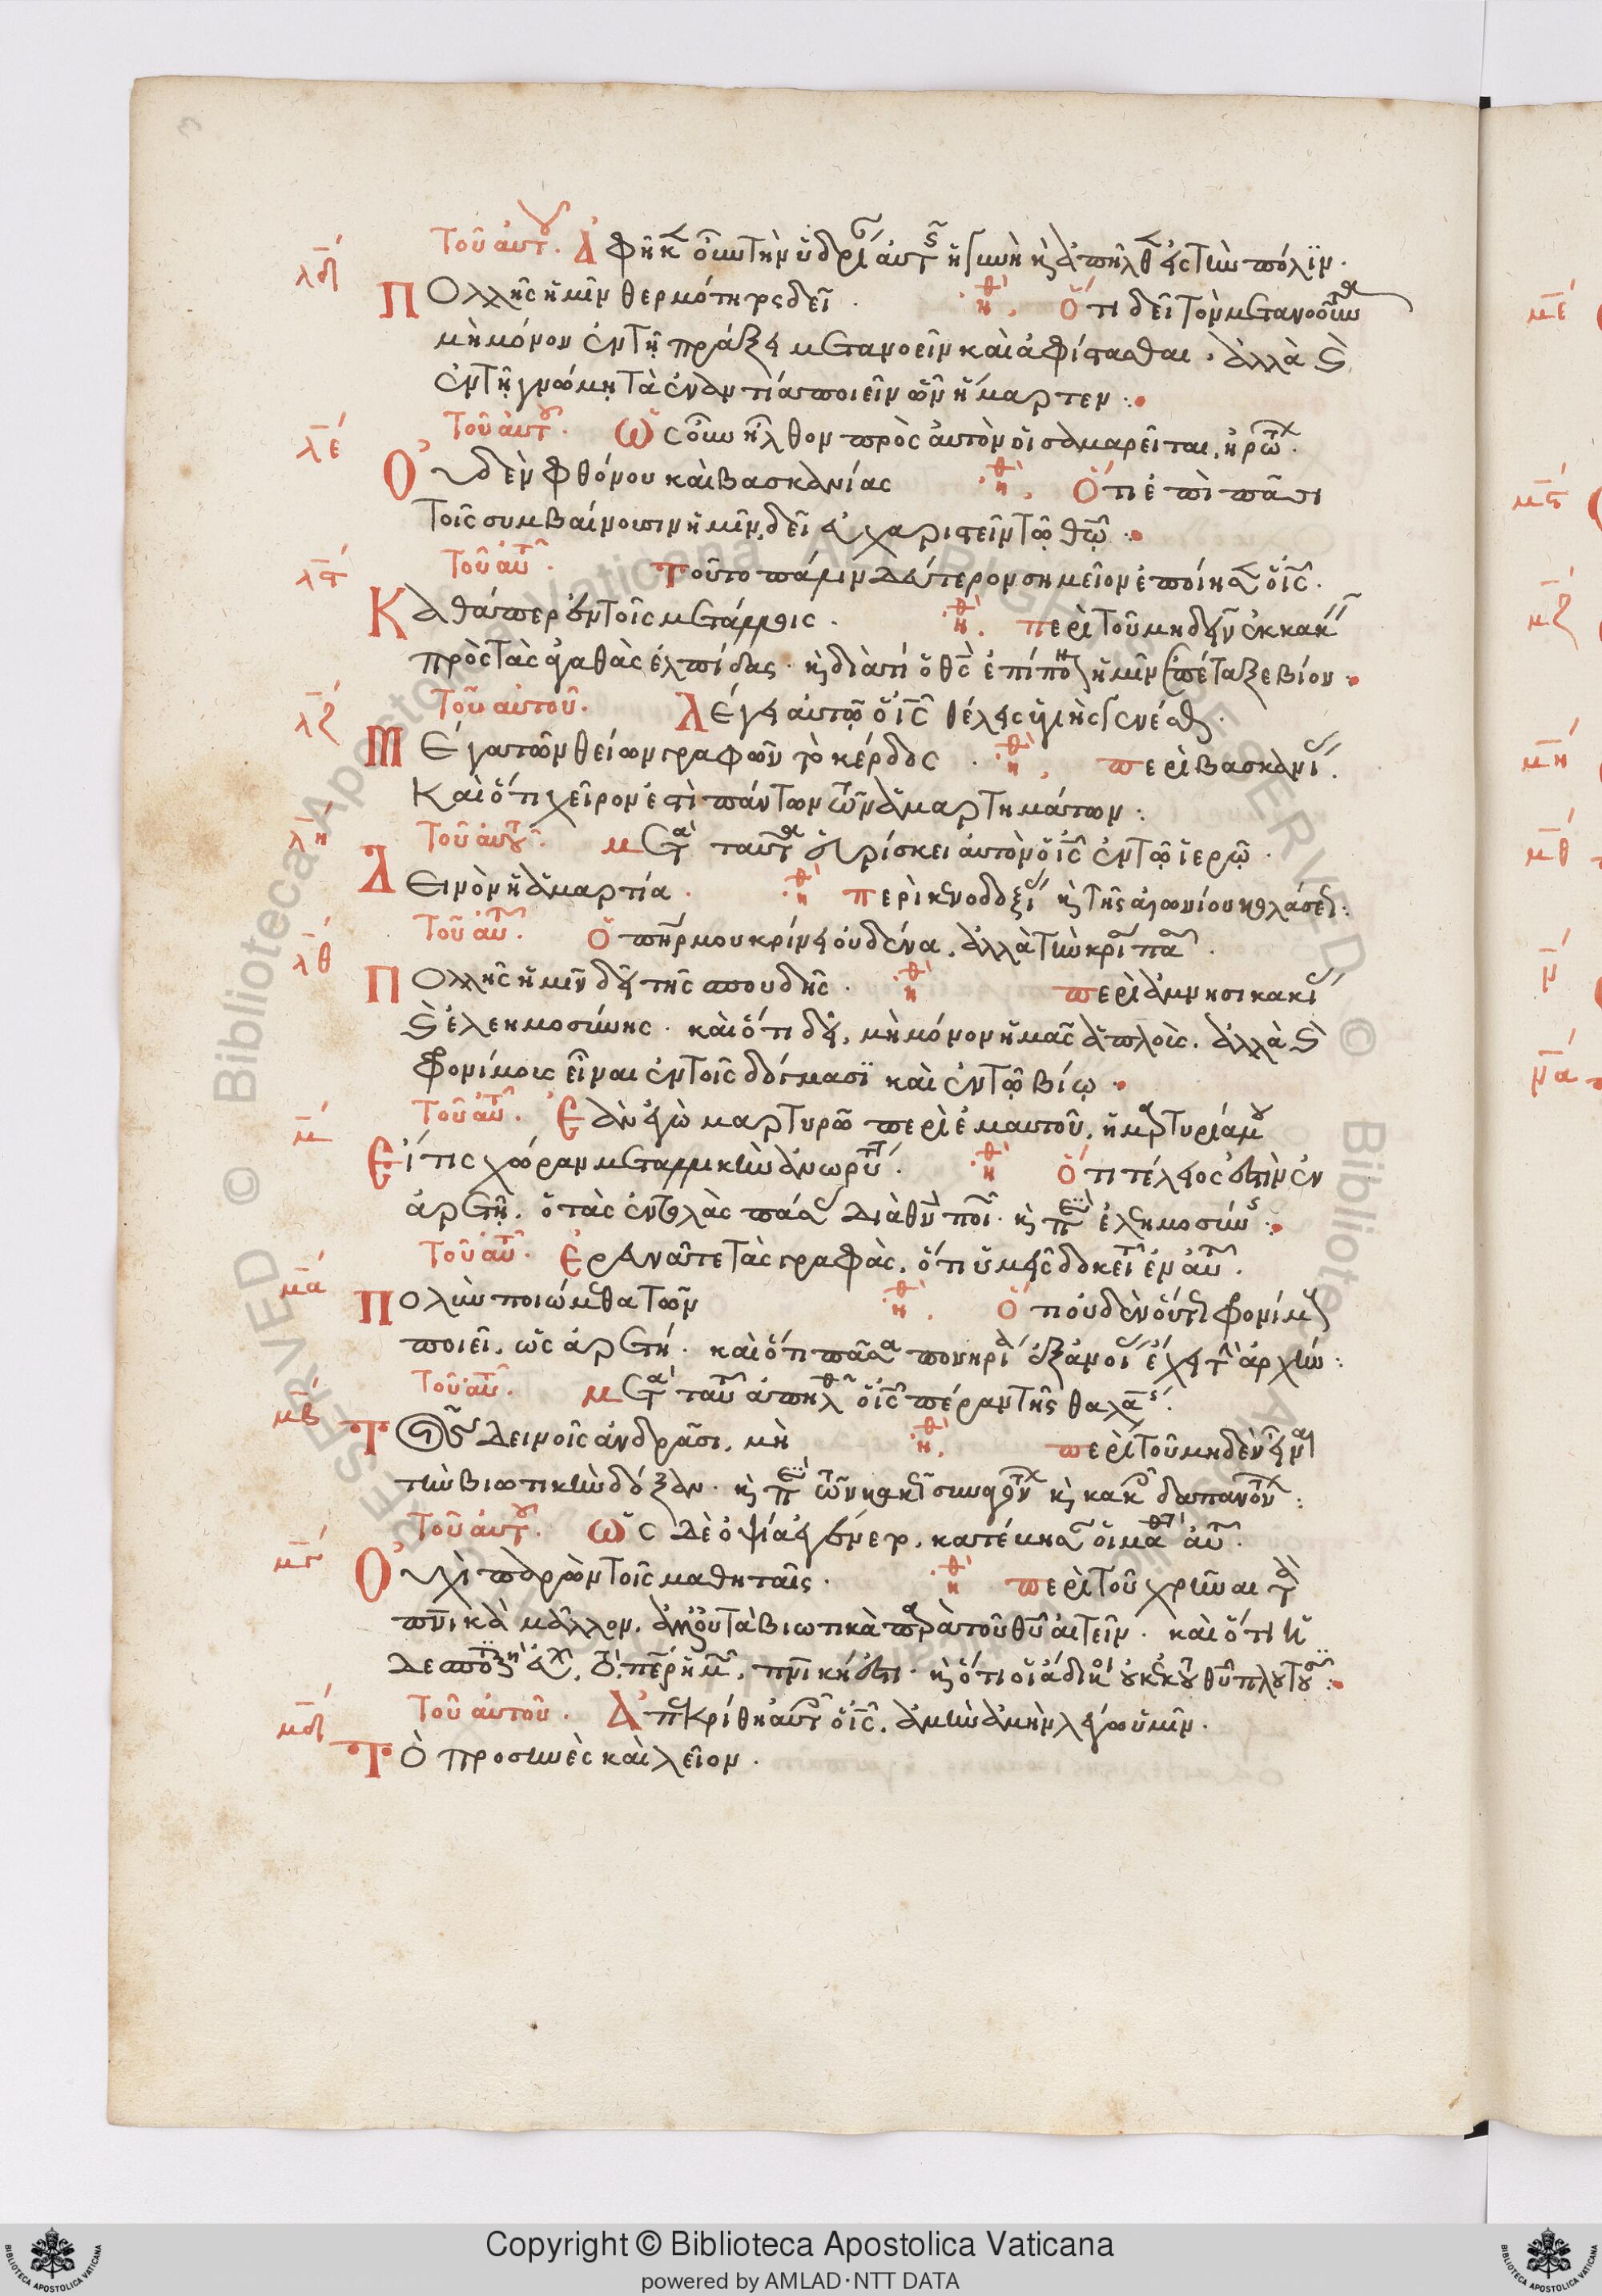 λδ Τοῦ αὐτοῦ. Ἀφῆκεν οὖν τὴν ὑδρίαν αὐτῆς ἡ γυνὴ καὶ ἀπῆλθεν εἰς τὴν πόλιν.
Πολλῆς ἡμῖν θερμότητος δεῖ. ἠθ. Ὅτι δεῖ τὸν μετανοοῦντα
μὴ μόνον ἐν τῇ πράξει μετανοεῖν καὶ ἀφίστασθαι, ἀλλὰ καὶ
ἐν τῇ γνώμῃ τὰ ἐναντία ποιεῖν ὧν ἥμαρτεν:
λε Τοῦ αὐτοῦ. Ὡς οὖν ἦλθον πρὸς αὐτὸν οἱ σαμαρεῖται, ἠρώτων.
Οὐδὲν φθόνου καὶ βασκανίας ἠθ. Ὅτι ἐπὶ πᾶσι
τοῖς συμβαίνουσιν ἡμῖν, δεῖ εὐχαριστεῖν τῷ θῷ.
λϛ Τοῦ αὐτοῦ. Τοῦτο πάλιν δεύτερον σημεῖον ἐποίησεν ὁ ις.
Καθάπερ ἐν τοῖς μετάλλοις. ἠθ. περὶ τοῦ μηδὲν ἐκκακεῖν
πρὸς τὰς ἀγαθὰς ἐλπίδας. καὶ διατί ὁ θς ἐπίπονον ἡμῖν ἐπέταξε βίον.
λζ Τοῦ αὐτοῦ. Λέγει αὐτῷ ὁ ις θέλεις ὑγιὴς γενέσθαι.
Μέγα τῶν θείων γραφῶν τὸ κέρδος. ἠθ. περὶ βασκανίας.
Καὶ ὅτι χεῖρον ἐστὶ πάντων τῶν ἁμαρτημάτων:
λη Τοῦ αὐτοῦ. μετὰ ταῦτα εὑρίσκει αὐτὸν ὁ ις ἐν τῷ ἱερῷ.
Δεινὸν ἡ ἁμαρτία. ἠθ περὶ κενοδοξίας καὶ τῆς αἰωνίου κολάσεως:
λθ Τοῦ αὐτοῦ. Ὁ πηρ μου κρίνει οὐδένα, ἀλλὰ τὴν κρίσιν πᾶσαν.
Πολλῆς ἡμῖν δεῖ τῆς σπουδῆς. ἠθ περὶ ἀμνησικακίας
καὶ ἐλεημοσύνης. καὶ ὅτι δεῖ, μὴ μόνον ἡμᾶς ἁπλοῖς, ἀλλὰ καὶ
φρονίμοις εἶναι ἐν τοῖς δόγμασι καὶ ἐν τῷ βίῳ.
μ Τοῦ αὐτοῦ. Ἐὰν ἐγὼ μαρτυρῶ περὶ ἐμαυτοῦ, ἡ μαρτυρία μου
Εἴ τις χώραν μεταλλικὴν ἀνωρύττει. ἠθ Ὅτι τέλειος ἐστὶν ἐν
ἀρετῇ, ὁ τὰς ἐντολὰς πάσας διὰ θν ποιῶν. καὶ περὶ ἐλεημοσύνης:
μα Τοῦ αὐτοῦ. Ἐρευνᾶτε τὰς γραφάς, ὅτι ὑμεῖς δοκεῖτε ἐν αὐταῖς.
Πολὺν ποιώμεθα τῶν ἠθ. Ὅτι οὐδὲν οὕτως φρονίμους
ποιεῖ, ὡς ἀρετή. καὶ ὅτι πᾶσα πονηρία ἐξ ἀνοίας ἔχει τὴν ἀρχήν:
μβ Τοῦ αὐτοῦ. μετὰ ταῦτα ἀπῆλθεν ὁ ις πέραν τῆς θαλάσσης.
Τοῖς δεινοῖς ἀνδράσι, μὴ ἠθ. περὶ τοῦ μηδὲν εἶναι
τὴν βιωτικὴν δόξαν. καὶ περὶ τῶν κακῶς συναγόντων καὶ κακῶς δαπανόντων:
μγ Τοῦ αὐτοῦ. Ὡς δὲ ὀψία ἐγένετο, κατέβησαν οἱ μαθηταὶ αὐτοῦ.
Οὐχὶ παρὼν τοῖς μαθηταῖς. ἠθ περὶ τοῦ χρῆναι τὰ
πνικὰ μᾶλλον, ἀλλ' οὐ τὰ βιωτικὰ παρὰ τοῦ θυ αἰτεῖν. καὶ ὅτι ἡ
μδ Τοῦ αὐτοῦ. Ἀπεκρίθη αὐτοῖς ὁ ις, ἀμὴν ἀμὴν λέγω ὑμῖν.
Τὸ προσηνὲς καὶ λεῖον.
με
μϛ
μζ
μη
μθ
ν
να
Copyright © Biblioteca Apostolica Vaticana
powered by AMLAD·NTT DATA